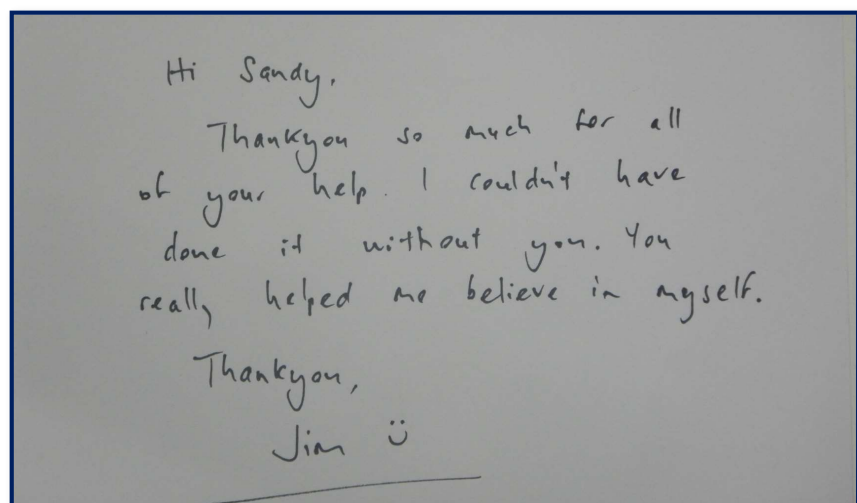 Hi Sandy,
Thankyou so much for all
of your help. I couldn't have
done it without you. You
really helped me believe in myself.
Thankyou,
Jim ü